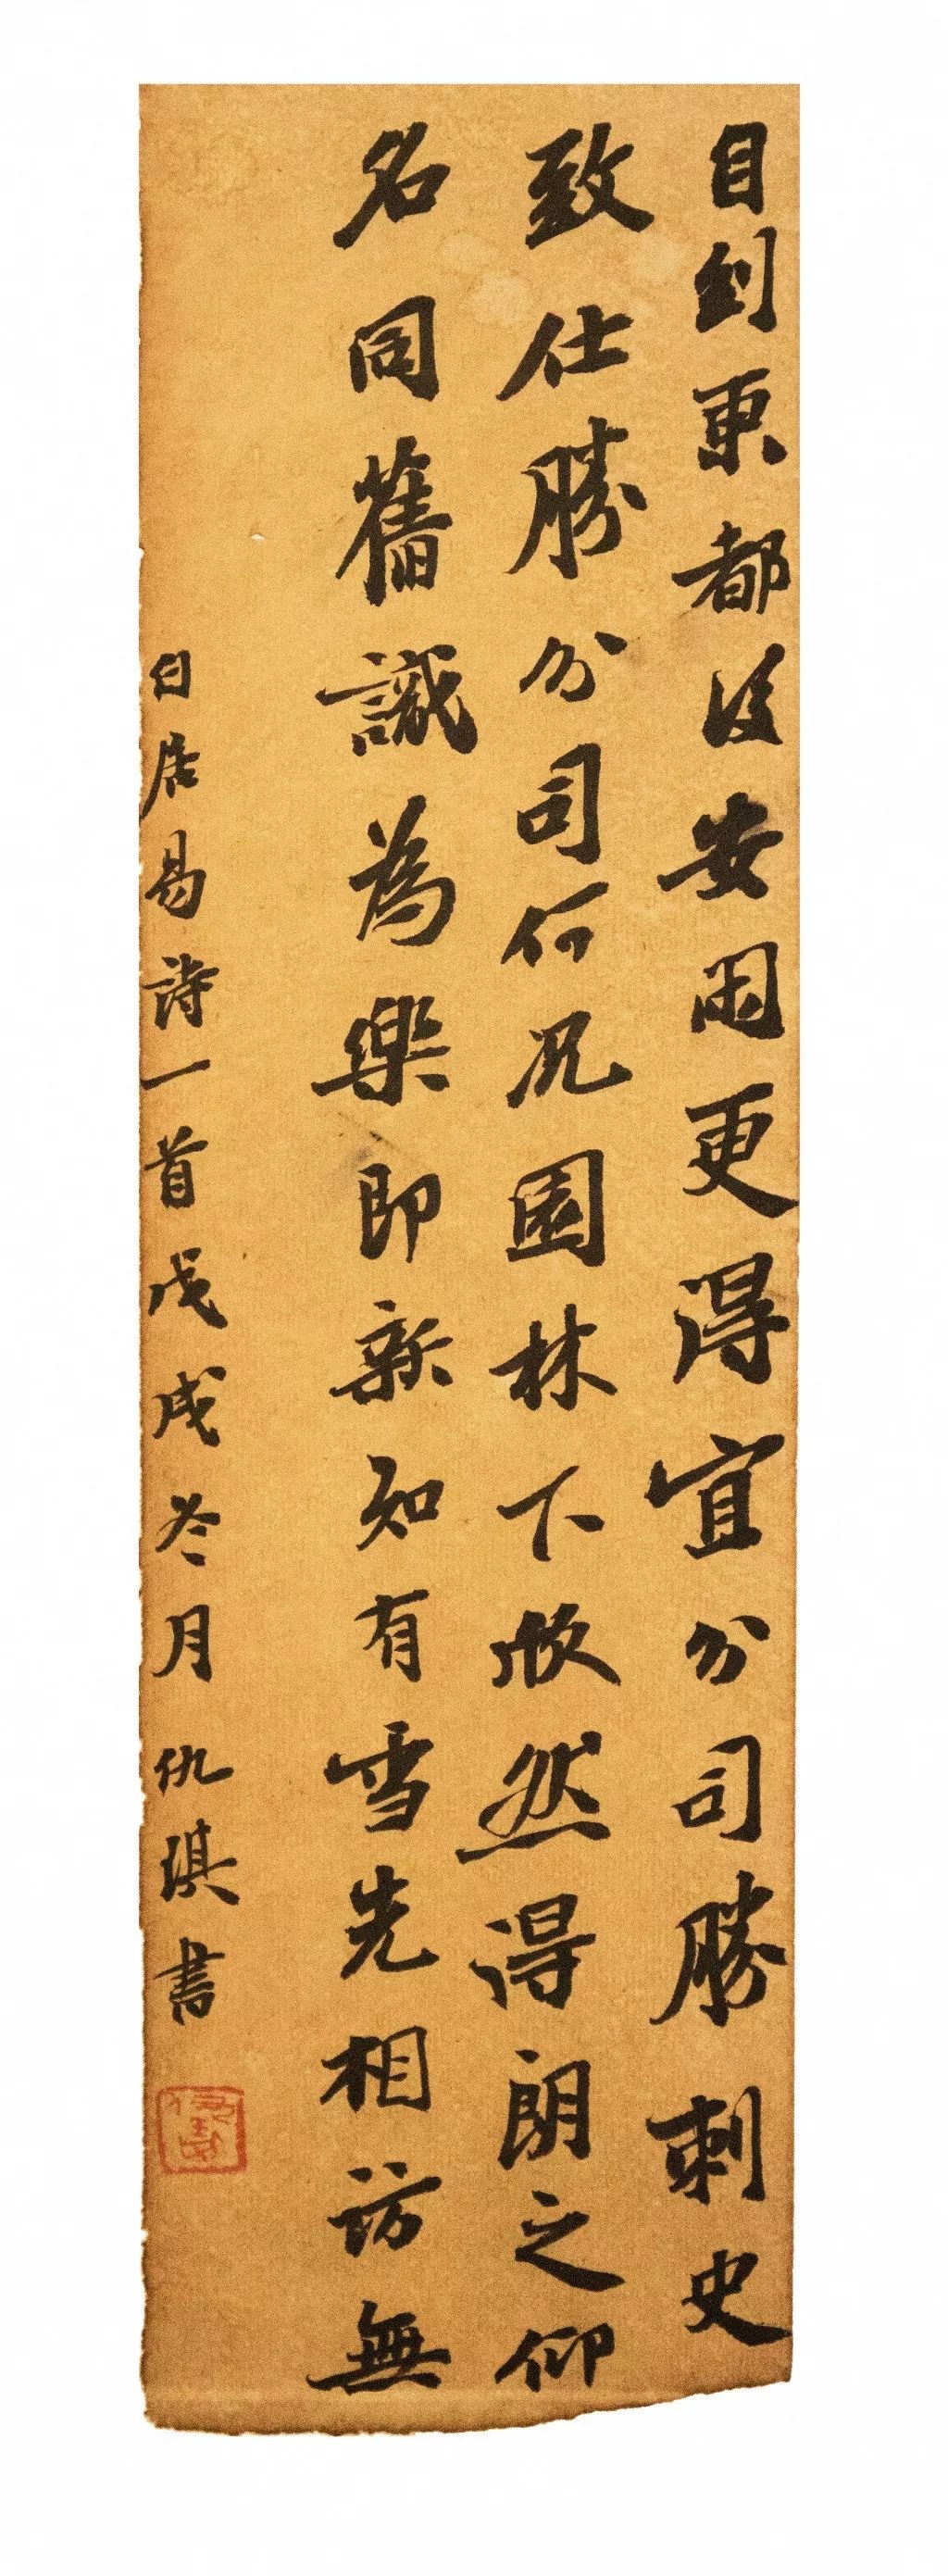 自到東都後安閑更得宜分司勝刺史
致仕勝分司何況園林下欣然得朗之仰
名同舊識為樂即新知有雪先相訪無
白居易詩一首戊戌冬月仇琪書